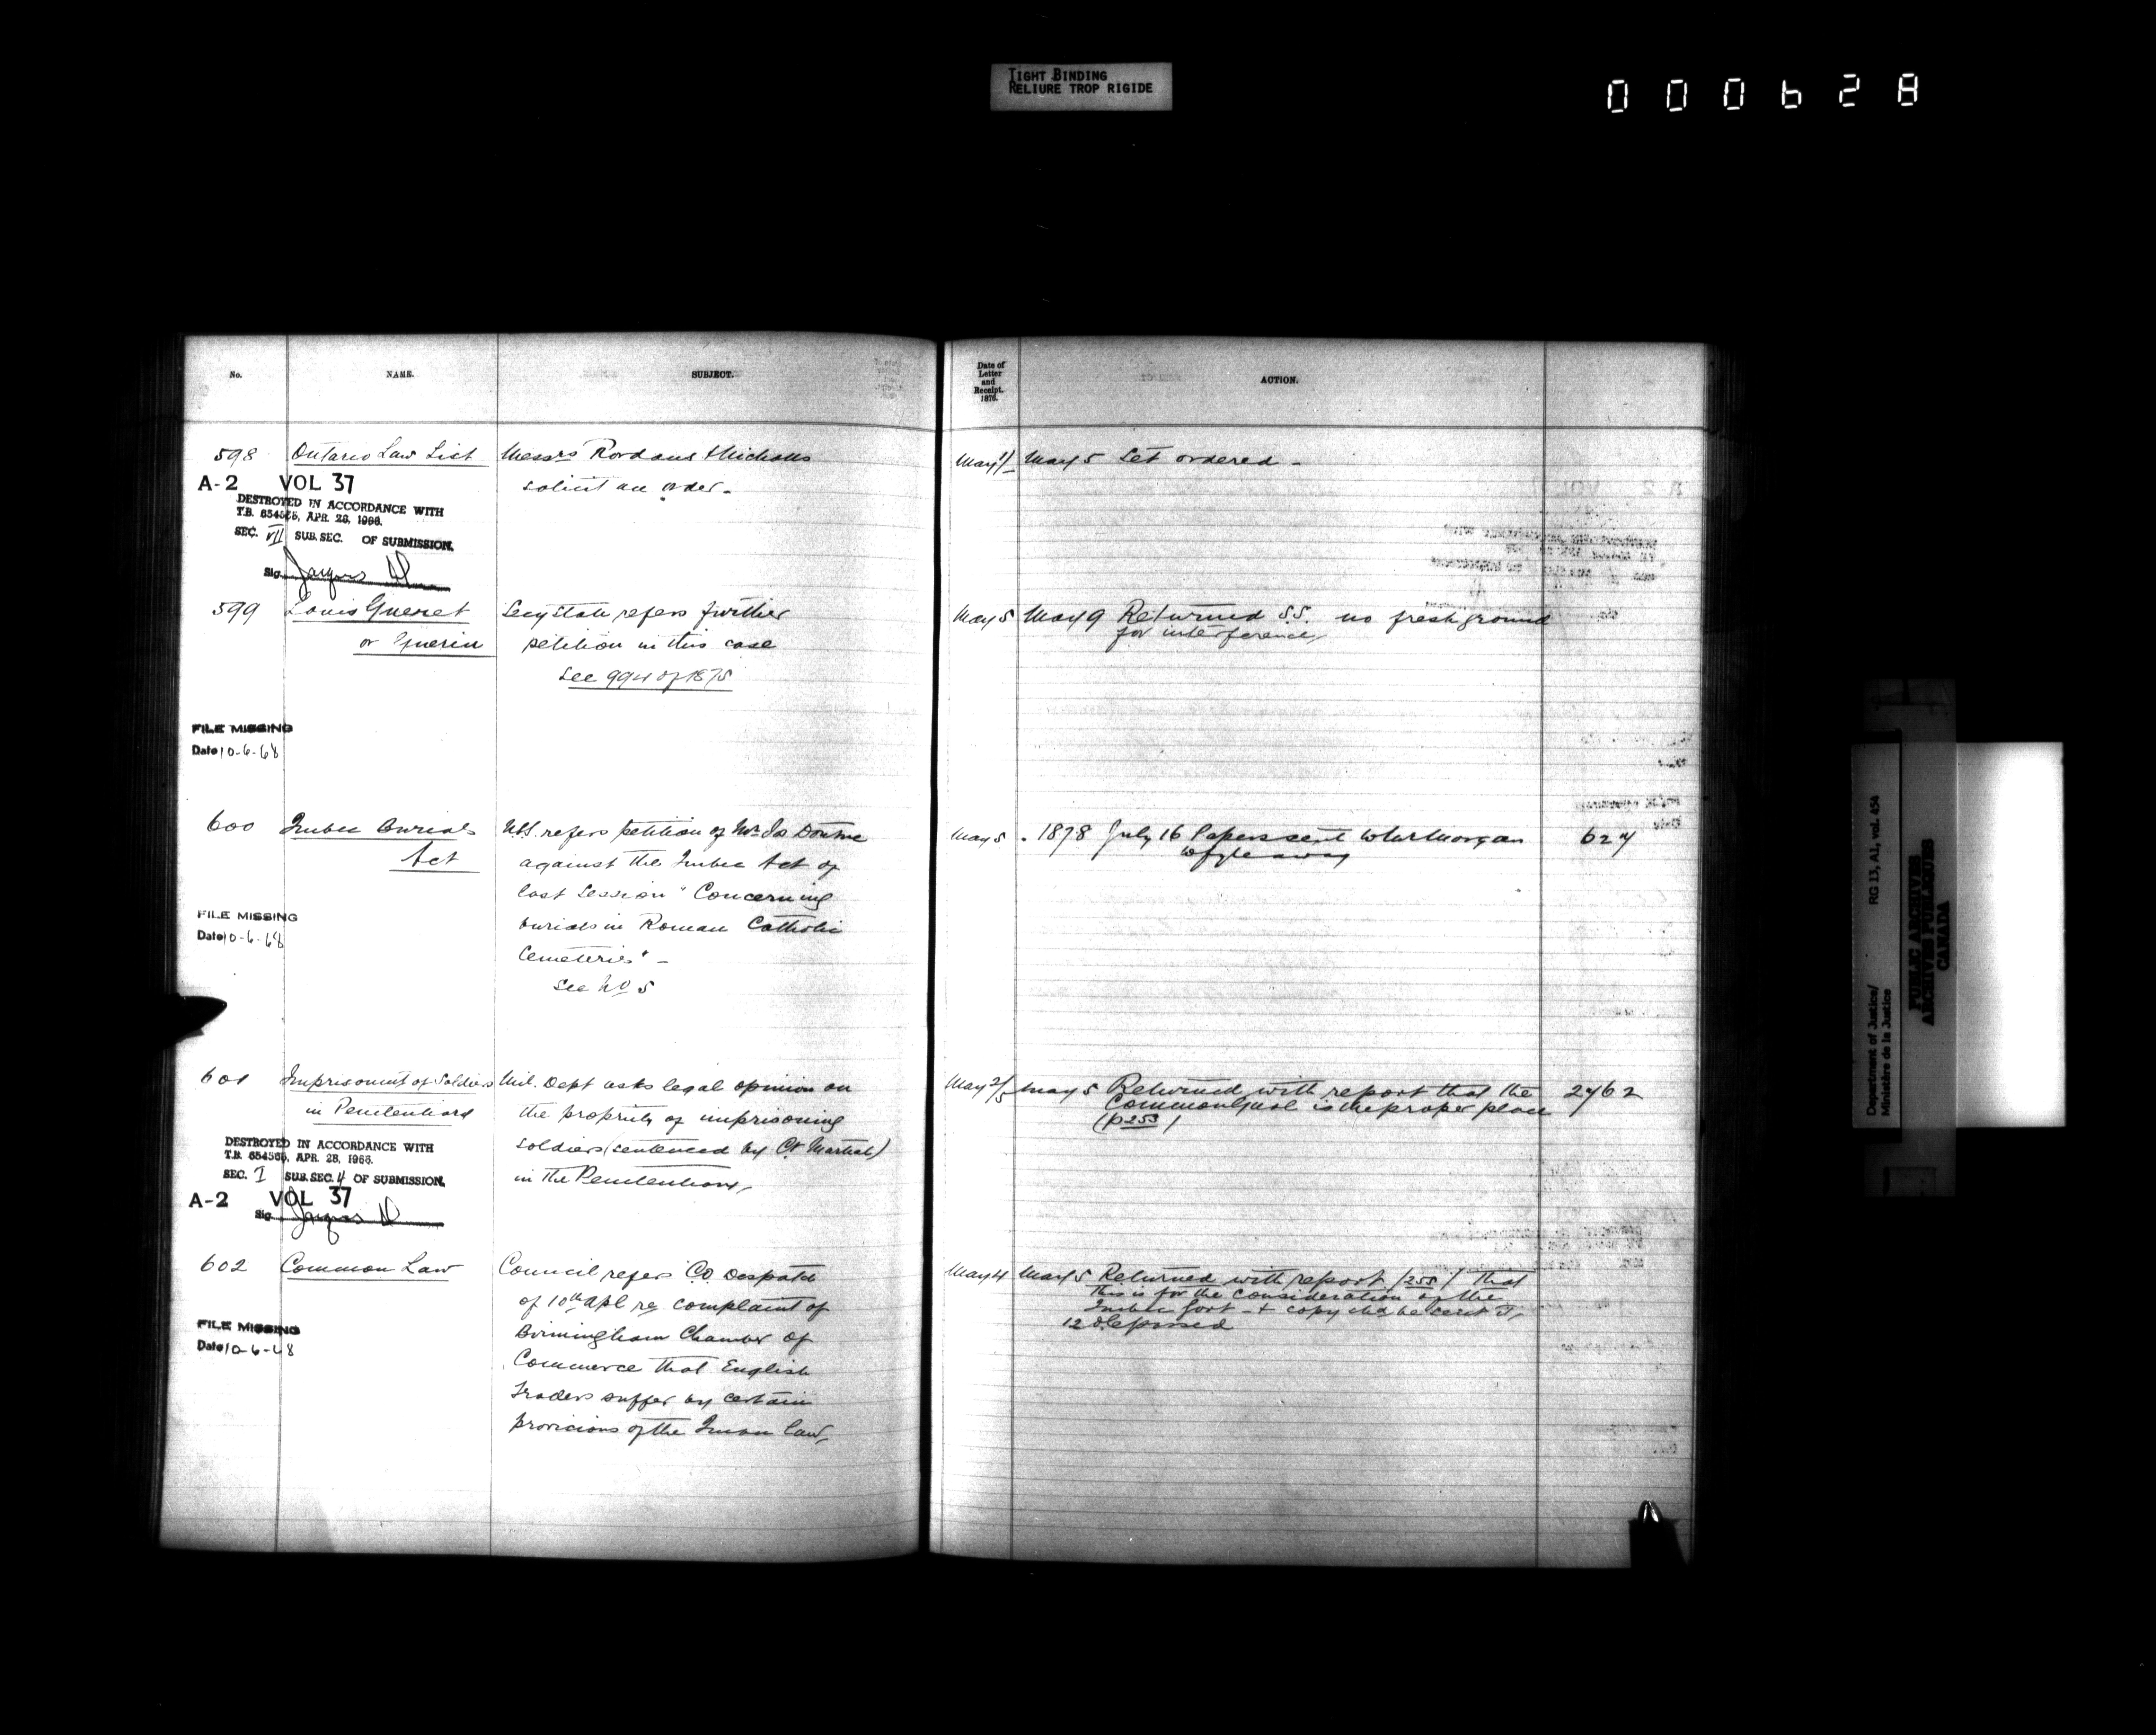 TIGHT BINDING
RELIURE TROP RIGIDE
000628
No.
NAME.
SUBJECT.
598
Ontario Law List
Messrs Rordans & Nicholls
solicit an order.
A-2 VOL 37
DESTROYED IN ACCORDANCE WITH
T.B. 654565, APR. 28, 1966.
SEC. VII SUB. SEC. OF SUBMISSION.
Sig.
599
Louis Guenet
or Guerin
Secy State refers further
petition in this case
See 994 of 1875
FILE MISSING
Date 10-6-68
600
Quebec Burials
Act
U.S.S. refers petition of Mr Jos Doutre
against the Quebec Act of
last Session "Concerning
burials in Roman Catholic
Cemeteries" -
See No 5
FILE MISSING
Date 10-6-68
601
Imprisonment of Soldiers
in Penitentiary
Mil. Dept asks legal opinion on
the propriety of imprisoning
soldiers (sentenced by Ct Martial)
in the Penitentiary
DESTROYED IN ACCORDANCE WITH
T.B. 654565, APR. 28, 1966.
SEC. I SUB. SEC. 4 OF SUBMISSION.
A-2 VOL 37
Sig.
602
Common Law
Council refers C.O. Despatch
of 10th Apl re complaint of
Birmingham Chamber of
Commerce that English
Traders suffer by certain
provisions of the Quebec law
FILE MISSING
Date 10-6-68
Date of
Letter
and
Receipt.
1876.
ACTION.
May 1/
May 5 Set ordered -
May 5
May 9 Returned S.S. no fresh ground
for interference
May 5
1878 July 16 Papers sent to Mr Morgan
627
May 2/5
May 5 Returned with report that the
Common Gaol is the proper place
(p 253)
2762
May 4
May 5 Returned with report (255) that
this is for the consideration of the
Quebec Govt - & copy shd be sent it
12
RG 13, A1, vol. 454
Department of Justice/
Ministère de la Justice
PUBLIC ARCHIVES
ARCHIVES PUBLIQUES
CANADA